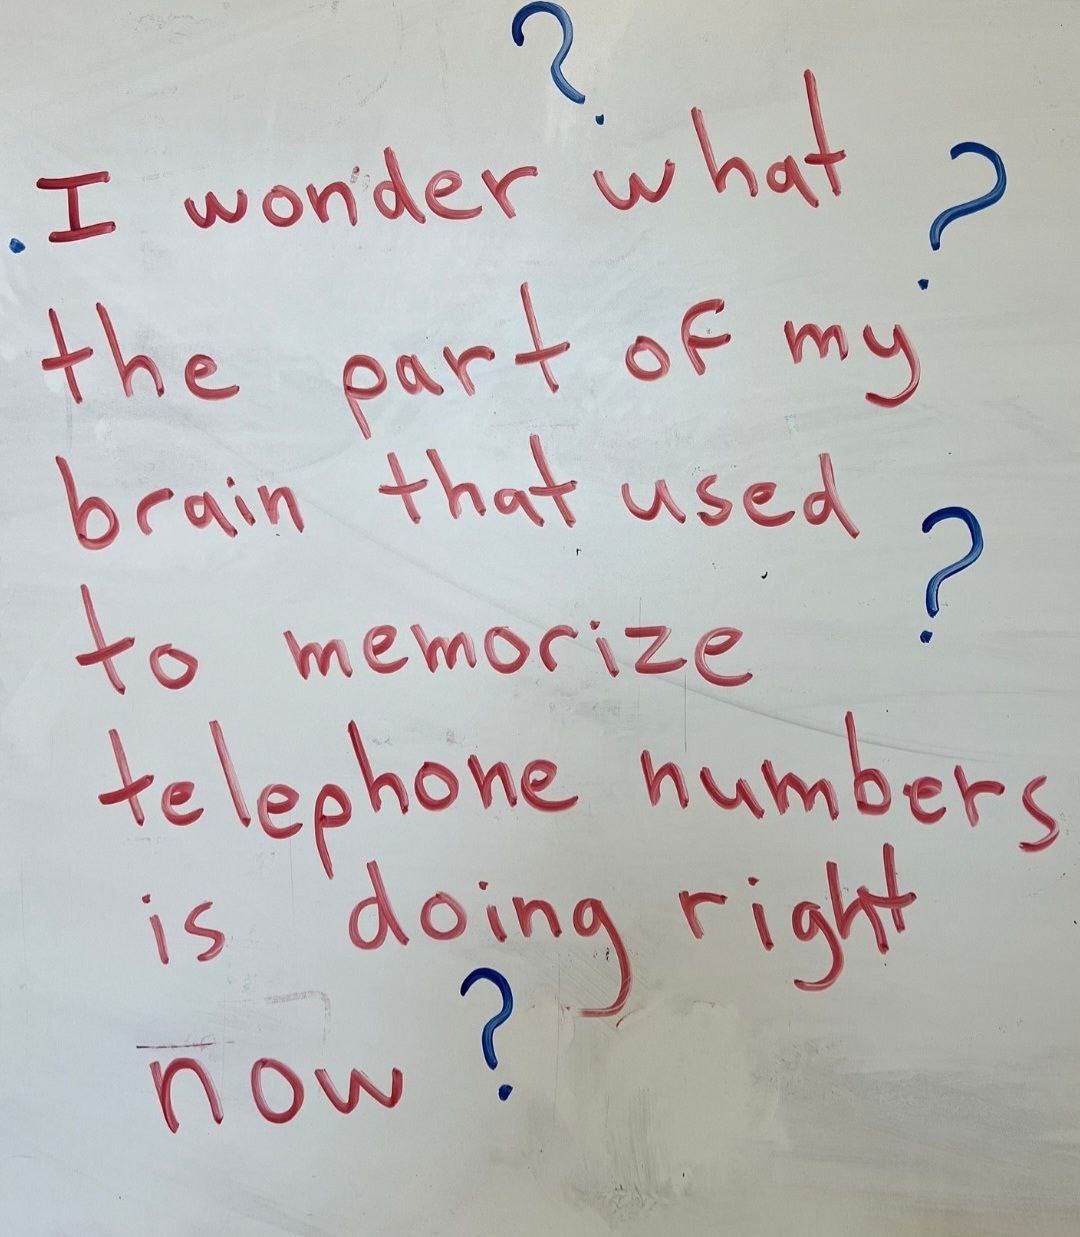 ?
I wonder what ?
the part of my
brain that used
?
to memorize
telephone numbers
is doing right
now ?